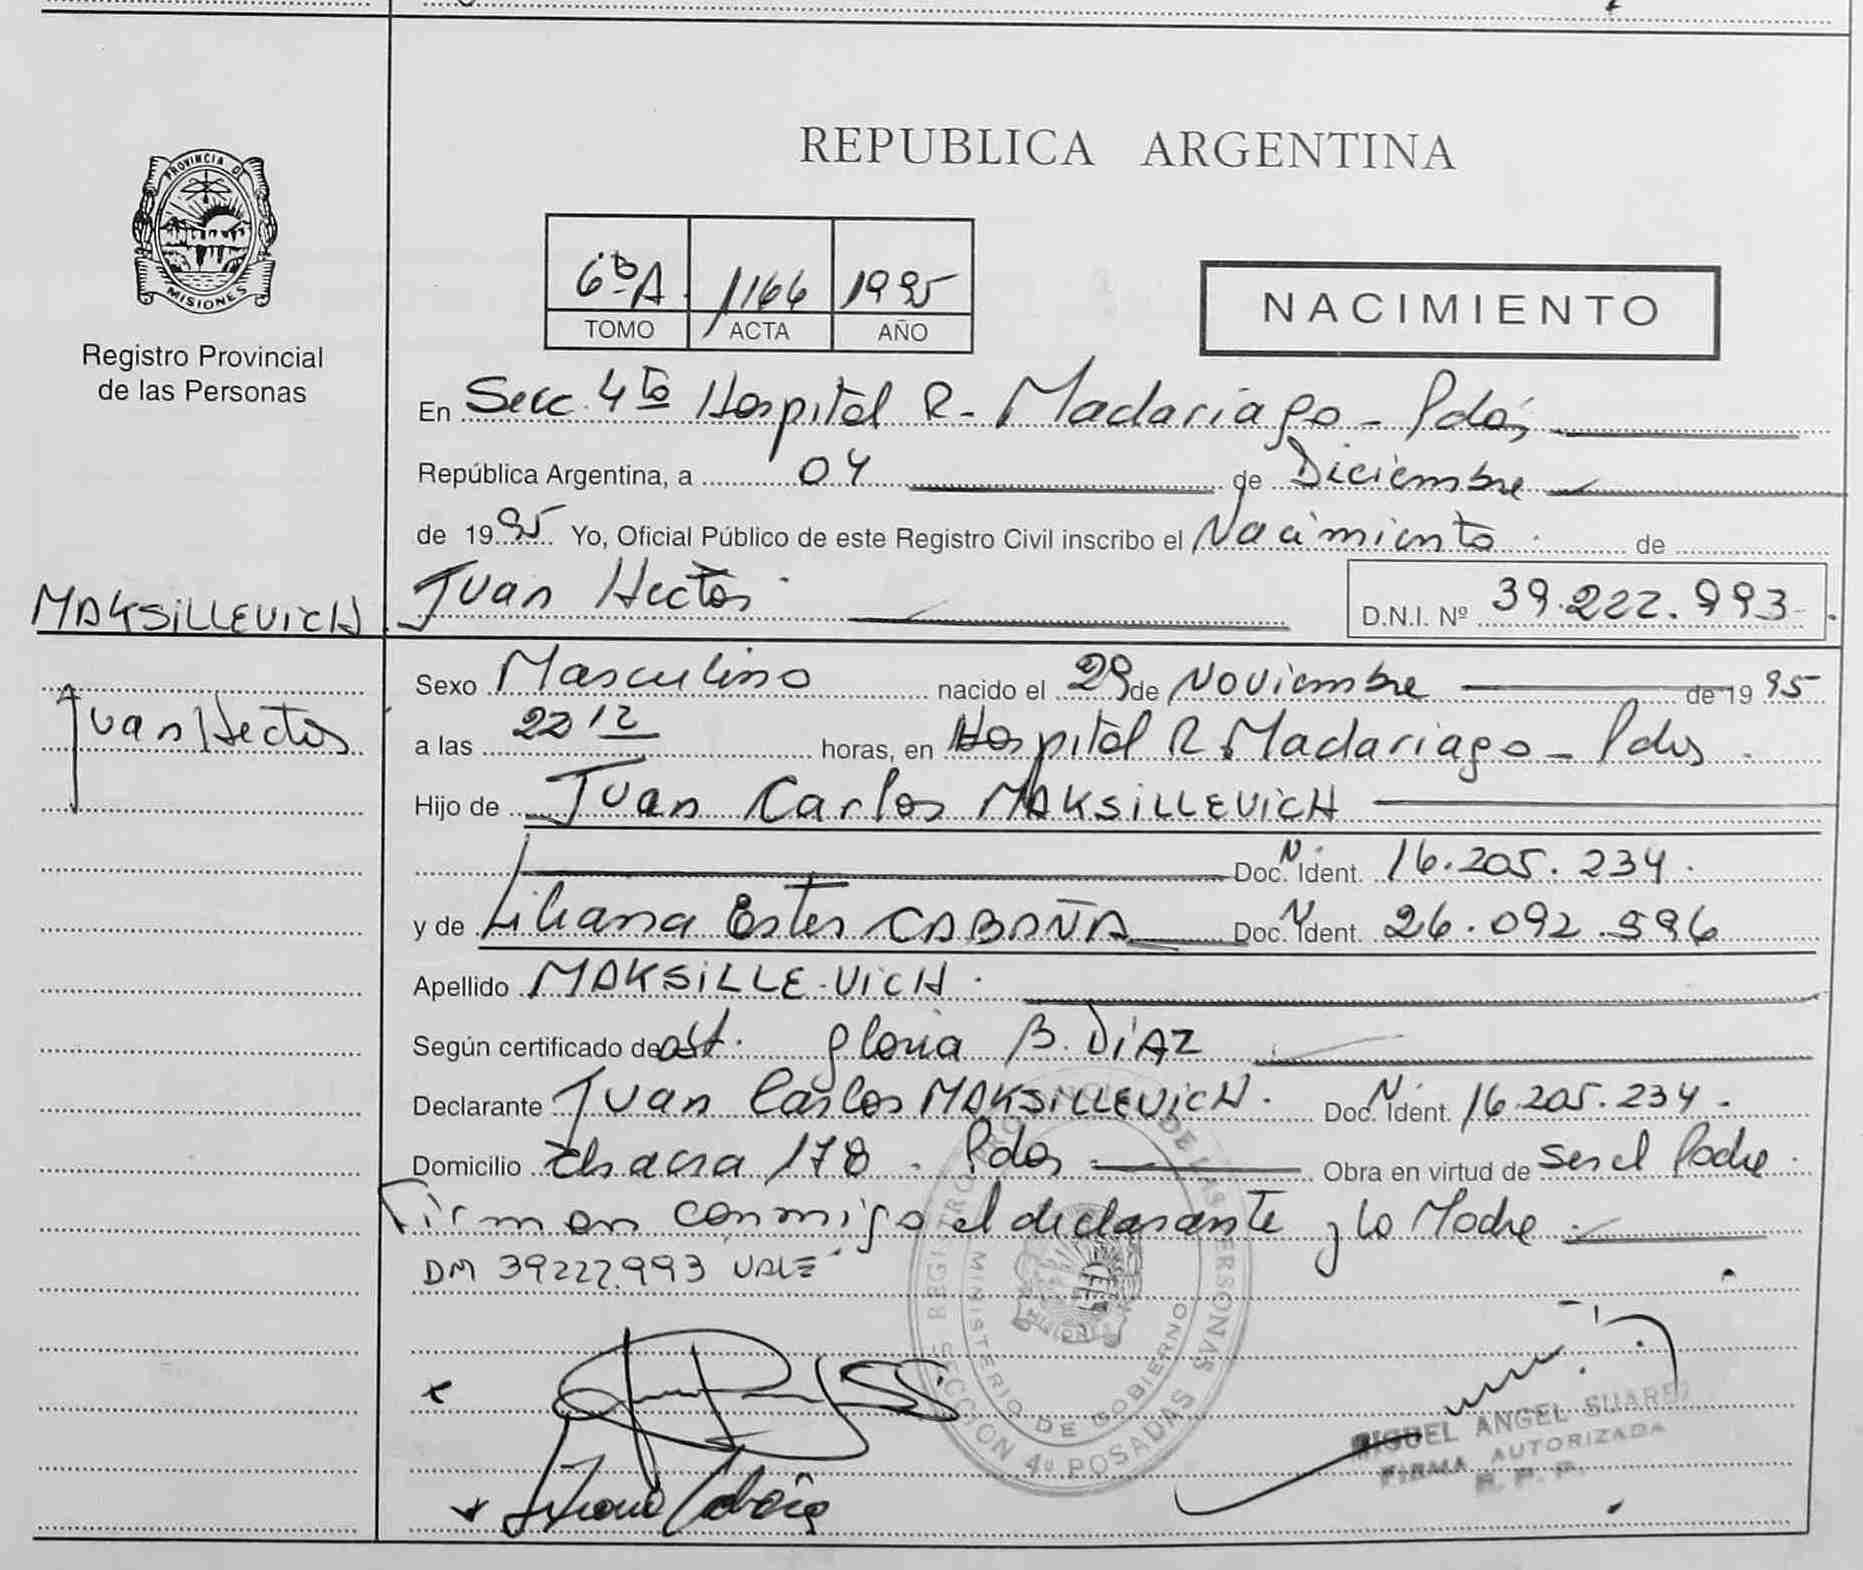 REPUBLICA ARGENTINA
PROVINCIA DE
MISIONES
Registro Provincial
de las Personas
6º A 1166 1995
TOMO ACTA AÑO
NACIMIENTO
En Secc. 4ta Hospital R. Madariaga - Pdas
República Argentina, a 04 de Diciembre
de 1995 Yo, Oficial Público de este Registro Civil inscribo el Nacimiento de
MAKSILLEVICH Juan Hector D.N.I. Nº 39.222.993
Juan Hector
Sexo Masculino nacido el 29 de Noviembre de 1995
a las 22 12 horas, en Hospital R. Madariaga - Pdas
Hijo de Juan Carlos MAKSILLEVICH
Doc. N. Ident. 16.205.234
y de Liliana Ester CABAÑA Doc. N. Ident. 26.092.596
Apellido MAKSILLEVICH
Según certificado de Obst. Gloria B. DIAZ
Declarante Juan Carlos MAKSILLEVICH Doc. N. Ident. 16.205.234
Domicilio Chacra 178 . Pdas Obra en virtud de ser el Padre
Firman conmigo el declarante y la Madre
DM 39222.993 VALE
REGISTRO PROVINCIAL DE LAS PERSONAS
MINISTERIO DE GOBIERNO
SECCION 4º POSADAS
MIGUEL ANGEL SUAREZ
FIRMA AUTORIZADA
R. P. P.
Liliana Cabaña